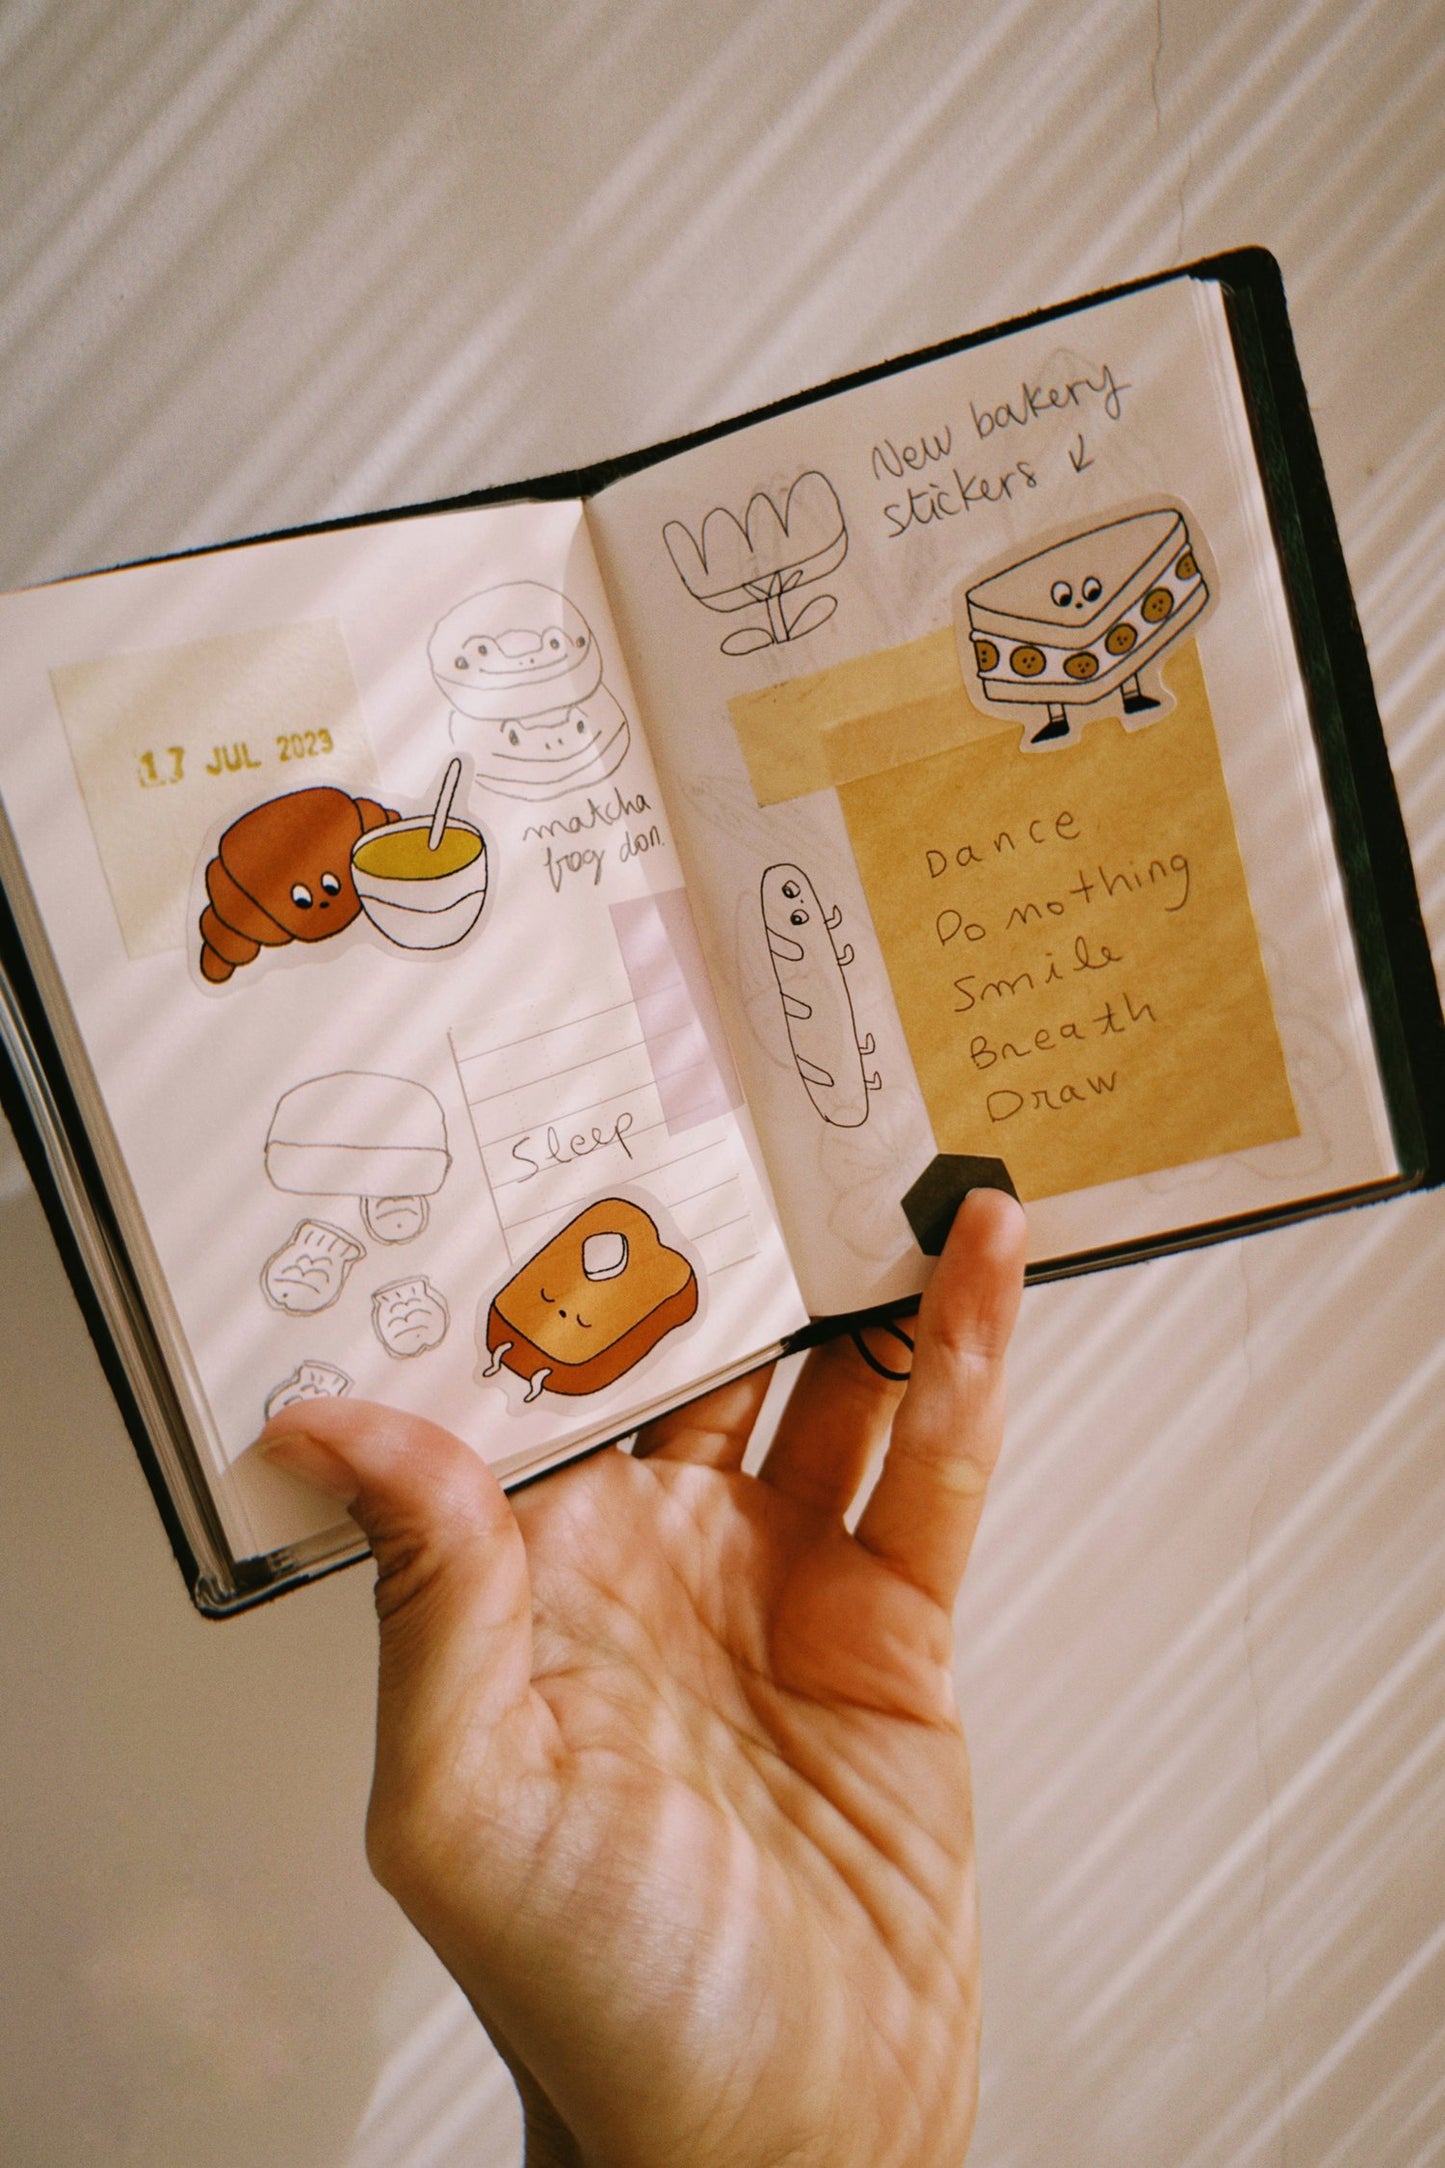 17 JUL 2023
matcha
frog don.
Sleep
New bakery
stickers ↙
Dance
Do nothing
Smile
Breath
Draw